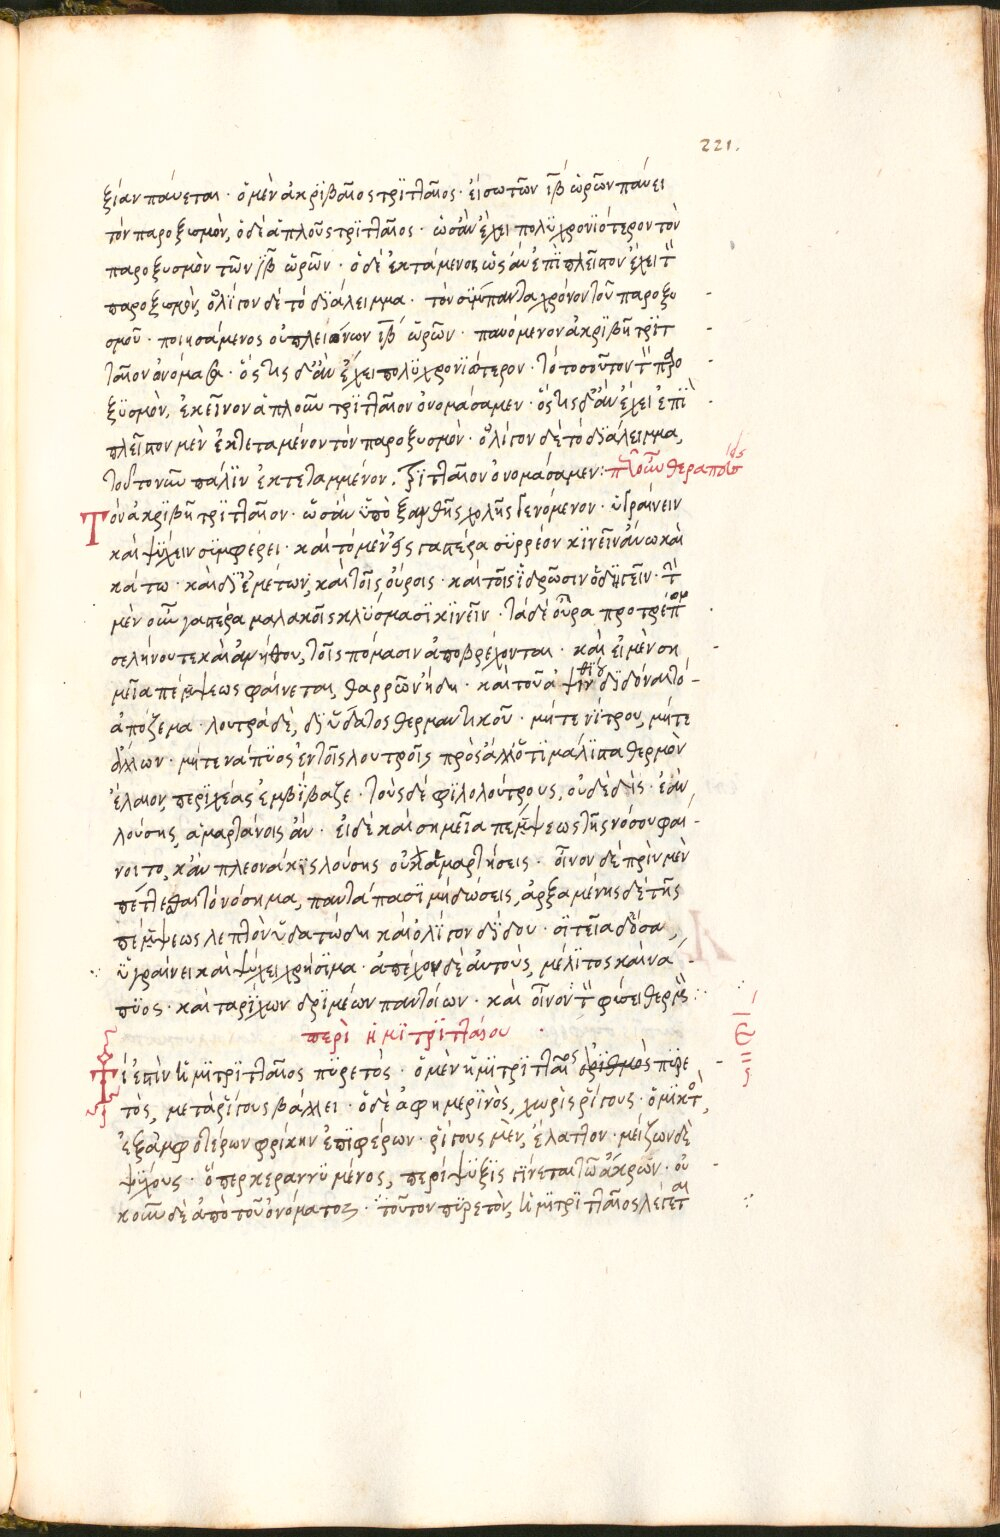 221.
ξίαν παύεται · ὁ μὲν ἀκριβαῖος τριταῖος · εἴσω τῶν ιβ ὡρῶν παύει
τὸν παροξυσμὸν, ὁ δὲ ἁπλοῦς τριταῖος · ὡς ἂν ἔχει πολυχρονιότερον τὸν
παροξυσμὸν τῶν ιβ ὡρῶν · ὁ δὲ ἐκτάμενος ὡς ἂν ἐπὶ πλεῖστον ἔχει τ
παροξυσμὸν, ὀλίγον δὲ τὸ διάλειμμα · τὸν σύμπαντα χρόνον τοῦ παροξυ
σμοῦ · ποιησάμενος οὐ πλειόνων ιβ ὡρῶν · παυόμενον ἀκριβῆ τριτ
ταῖον ὀνόμασα · ὅστις δ' ἂν ἔχει πολυχρονιώτερον · τὸ τοσοῦτον τ παρο
ξυσμὸν, ἐκεῖνον ἁπλοῦν τριταῖον ὀνομάσαμεν · ὅστις δ' ἂν ἔχει ἐπὶ
πλεῖστον μὲν ἐκτεταμένον τὸν παροξυσμὸν · ὀλίγον δὲ τὸ διάλειμμα,
τοῦτον οὖν πάλιν ἐκτεταμμένον. τριταῖον ὀνομάσαμεν: θεραπ
Τὸν ἀκριβῆ τριταῖον · ὡσὰν ὑπὸ ξανθῆς χολῆς γενόμενον · ὑγραίνειν
καὶ ψύχειν συμφέρει · καὶ τὸ μὲν εἰς γαστέρα συρρέον κινεῖν ἄνω καὶ
κάτω · καὶ δι' ἐμέτων, καὶ τοῖς οὔροις · καὶ τοῖς ἱδρῶσιν ὁδηγεῖν · τ
μὲν οὖν γαστέρα μαλακοῖς κλύσμασι κινεῖν · τὰ δὲ οὖρα προτρέπ
σελήνου τε καὶ ἀνήθου, τοῖς πόμασιν ἀποβρέχονται · καὶ εἰ μὲν ση
μεῖα πέμψεως φαίνεται, θαρρῶν ἤδη · καὶ τοῦ ἀψινθίου διδόναι τὸ
ἀπόζεμα · λουτρὰ δὲ, δι' ὕδατος θερμαντικοῦ · μήτε νίτρου, μήτε
ἄλλων · μήτε νάπυος ἐν τοῖς λουτροῖς πρὸς ἀλλ' ὅτι μάλιστα θερμὸν
ἔλαιον, περιχέας ἐμβίβαζε · τοὺς δὲ φιλολούτρους, οὐδὲ δὶς · ἐὰν
λούσης, ἁμαρτάνοις ἂν · εἰ δὲ καὶ σημεῖα πέμψεως τῆς νόσου φαι
νοιτο, κἂν πλεονάκις λούσης οὐχ ἁμαρτήσεις · οἶνον δὲ πρὶν μὲν
πέττεσθαι τὸ νόσημα, παντάπασι μὴ δώσεις, ἀρξαμένης δὲ τῆς
πέμψεως λεπτὸν ὑδατώδη καὶ ὀλίγον δίδου · σιτεῖα δ' ὅσα,
ὑγραίνει καὶ ψύχει χρήσιμα · ἀπέχου δὲ αὐτοὺς, μέλιτος καὶ να
πυος · καὶ ταρίχων δριμέων παντοίων · καὶ οἶνον τ φύσει θερμὸς :
περὶ ἡμιτριταίου
Τί ἐστιν ἡμιτριταῖος πυρετός · ὁ μὲν ἡμιτριταῖος πυρε
τός, μετὰ ῥίγους βάλλει · ὁ δὲ ἀφημερινὸς, χωρὶς ῥίγους · ὁ μικτ,
ἐξ ἀμφοτέρων φρίκην ἐπιφέρων · ῥίγους μὲν, ἔλαττον · μείζων δὲ
ψύχους · ὅπερ κεραννύμενος, περίψυξις γίνεται τῶν ἄκρων · οὐ
κοῦν δὲ ἀπὸ τοῦ ὀνόματος · τοῦτον πυρετὸν, ἡμιτριταῖος λέγεται